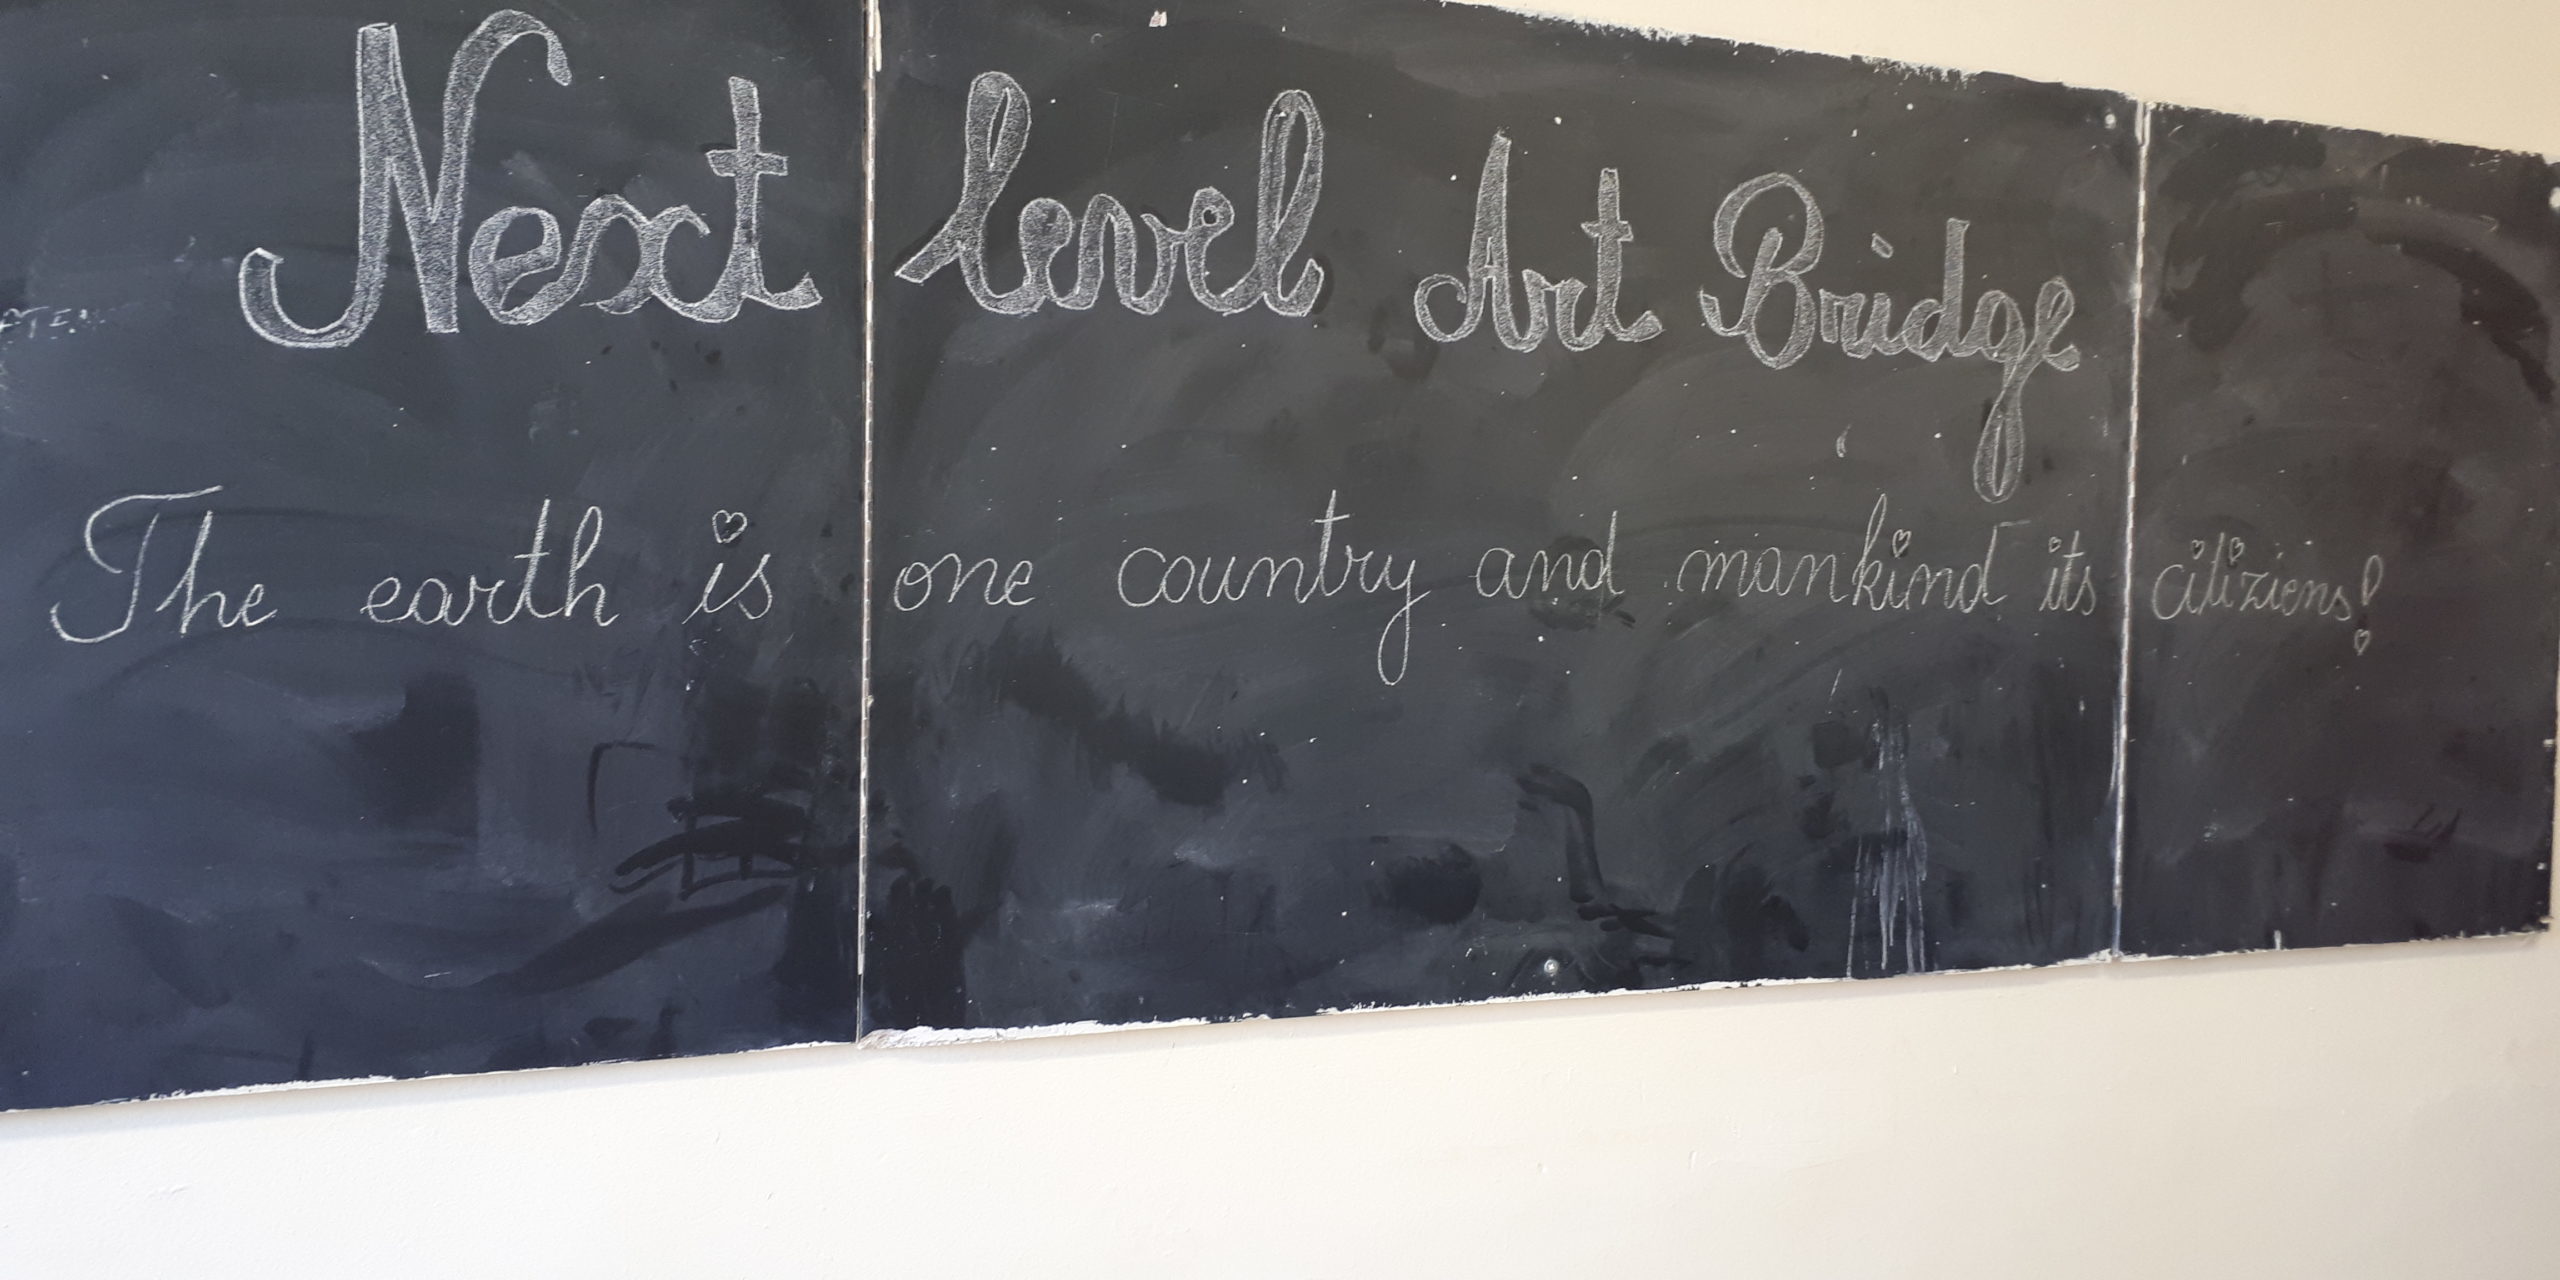 Next level Art Bridge
The earth is one country and mankind its citiziens!